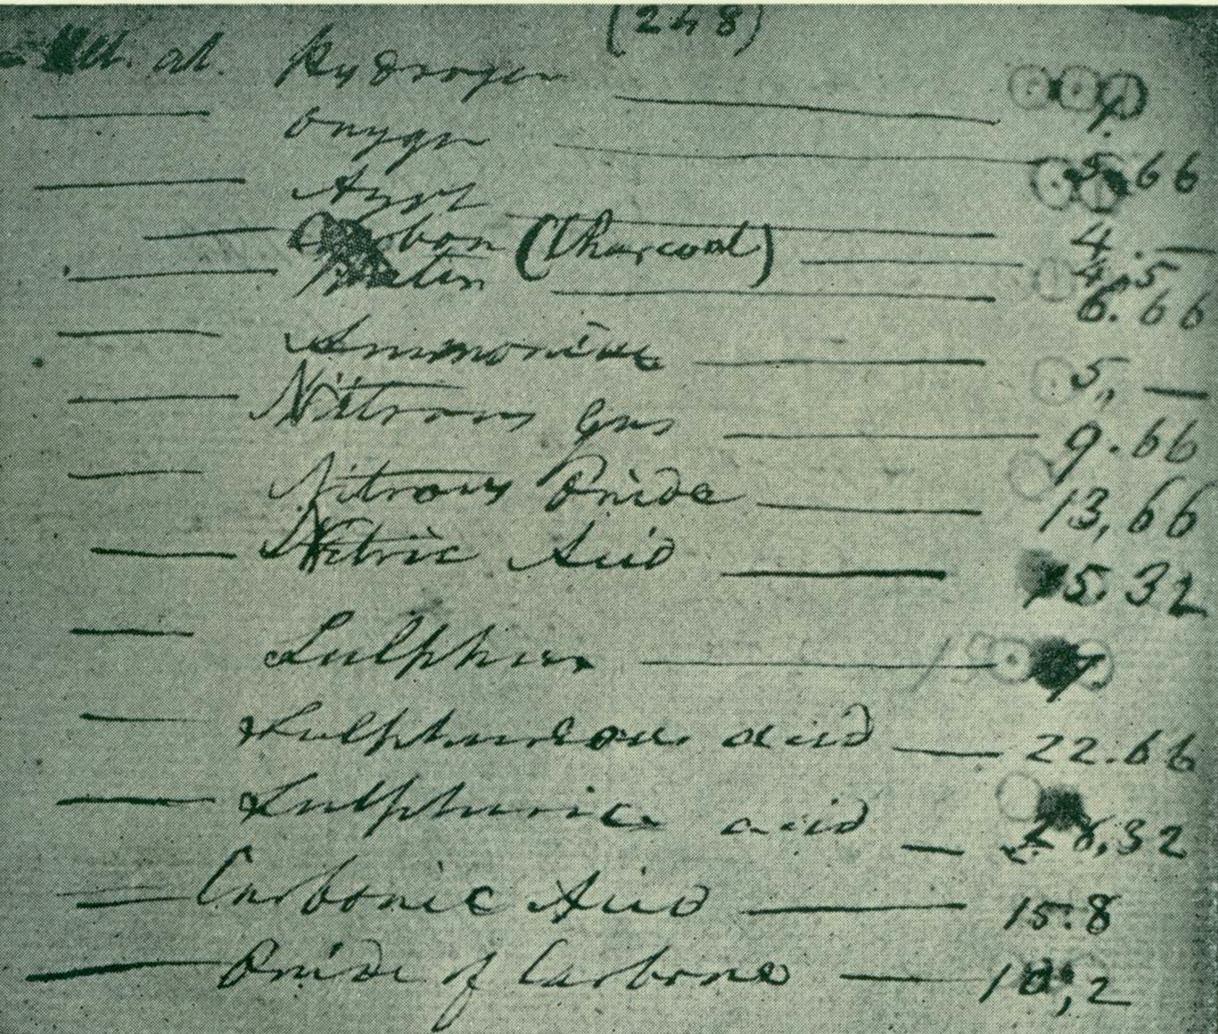 (248)
Ult. at. Hydrogen 1
Oxygen 5.66
Azot 4.
Carbon (Charcoal) 4.5
Water 6.66
Ammonia 5
Nitrous gas 9.66
Nitrous Oxide 13,66
Nitric Acid 15.32
Sulphur 17
Sulphureous acid 22.66
Sulphuric acid 28,32
Carbonic Acid 15.8
Oxide of Carbone 10,2